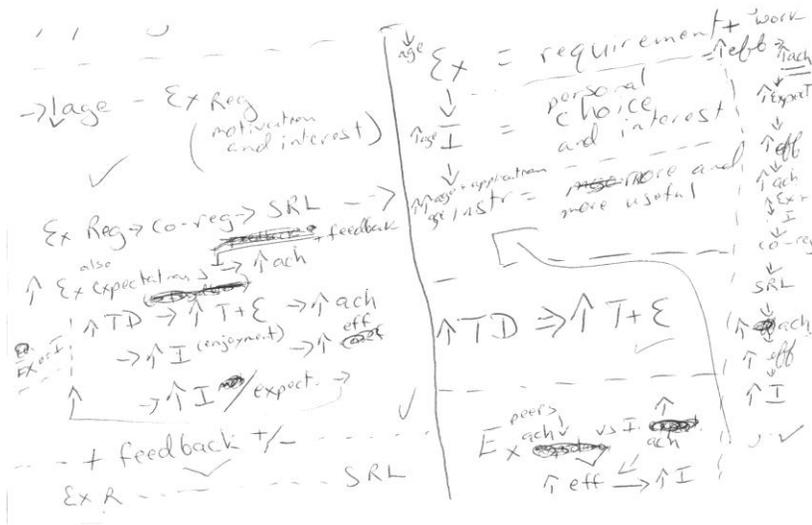 → ↓age - Ex Reg
(motivation
and interest)
✓
Ex Reg → co-reg → SRL - - →
+ feedback
also
↑ Ex expectations → ↑ ach
↑ TD → ↑ T+E → ↑ ach
→ ↑ I (enjoyment) → ↑ eff
Ex or I
↑ → ↑ I /expect. →
+ feedback +/-
Ex R - - - - - SRL
↓age Ex = requirement + work
↓
↑age I = personal
choice
and interest
↓
age instr = more and
more useful
↑ TD ⇒ ↑ T+E
peers
Ex ach vs I. ach
↑ eff → ↑ I
= ↑ eff = ↑ ach
↓
↑ expect
↓
↑ eff
↓
↑ ach
↓
↑ Ex +
I
↓
co-reg
↓
SRL
↓
↑ ach
↓
↑ eff
↓
↑ I
✓